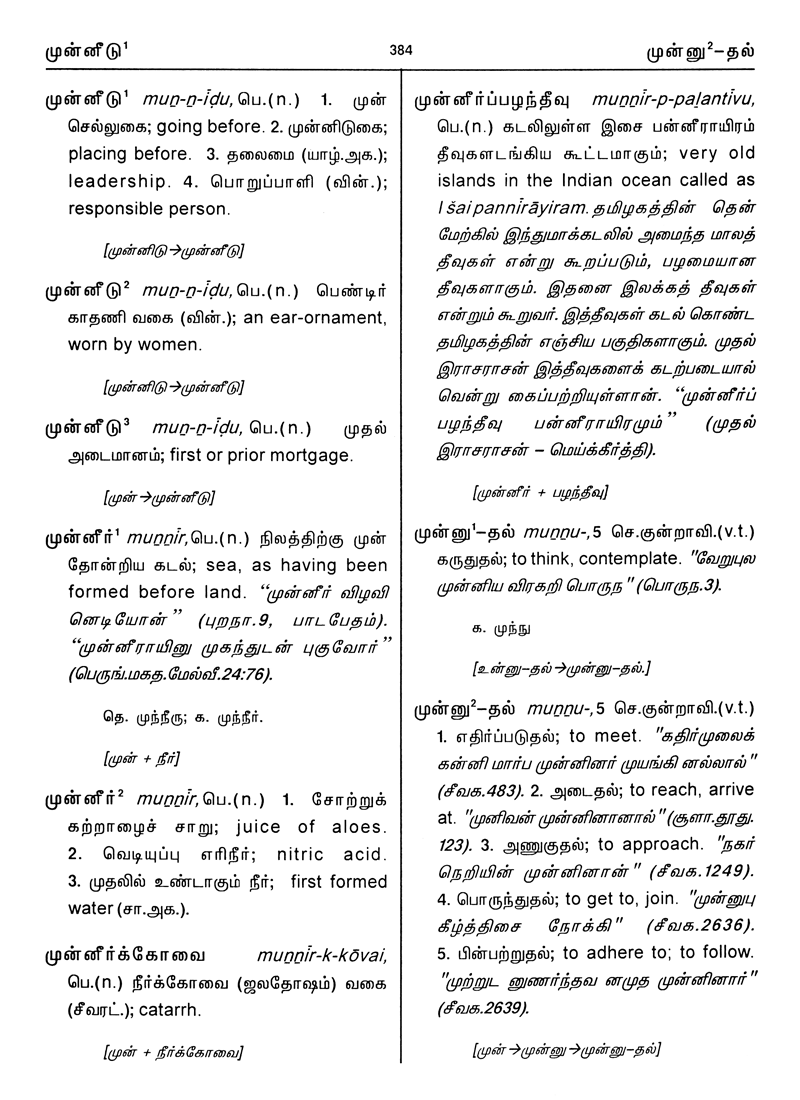 முன்னீடு¹
384
முன்னு²–தல்
முன்னீடு¹ muṉ-ṉ-īḍu, பெ.(n.) 1. முன்
செல்லுகை; going before. 2. முன்னிடுகை;
placing before. 3. தலைமை (யாழ்.அக.);
leadership. 4. பொறுப்பாளி (வின்.);
responsible person.
[முன்னிடு→முன்னீடு]
முன்னீடு² muṉ-ṉ-īḍu, பெ.(n.) பெண்டிர்
காதணி வகை (வின்.); an ear-ornament,
worn by women.
[முன்னிடு→முன்னீடு]
முன்னீடு³ muṉ-ṉ-īḍu, பெ.(n.) முதல்
அடைமானம்; first or prior mortgage.
[முன்→முன்னீடு]
முன்னீர்¹ muṉṉīr, பெ.(n.) நிலத்திற்கு முன்
தோன்றிய கடல்; sea, as having been
formed before land. “முன்னீர் விழவி
னெடியோன்” (புறநா.9, பாடபேதம்).
“முன்னீராயினு முகந்துடன் புகுவோர்”
(பெருங்.மகத.மேல்வீ.24:76).
தெ. முந்நீரு; க. முந்நீர்.
[முன் + நீர்]
முன்னீர்² muṉṉīr, பெ.(n.) 1. சோற்றுக்
கற்றாழைச் சாறு; juice of aloes.
2. வெடியுப்பு எரிநீர்; nitric acid.
3. முதலில் உண்டாகும் நீர்; first formed
water (சா.அக.).
முன்னீர்க்கோவை muṉṉīr-k-kōvai,
பெ.(n.) நீர்க்கோவை (ஜலதோஷம்) வகை
(சீவரட்.); catarrh.
[முன் + நீர்க்கோவை]
முன்னீர்ப்பழந்தீவு muṉṉīr-p-paḻantīvu,
பெ.(n.) கடலிலுள்ள இசை பன்னீராயிரம்
தீவுகளடங்கிய கூட்டமாகும்; very old
islands in the Indian ocean called as
Išai pannīrāyiram. தமிழகத்தின் தென்
மேற்கில் இந்துமாக்கடலில் அமைந்த மாலத்
தீவுகள் என்று கூறப்படும், பழமையான
தீவுகளாகும். இதனை இலக்கத் தீவுகள்
என்றும் கூறுவர். இத்தீவுகள் கடல் கொண்ட
தமிழகத்தின் எஞ்சிய பகுதிகளாகும். முதல்
இராசராசன் இத்தீவுகளைக் கடற்படையால்
வென்று கைப்பற்றியுள்ளான். “முன்னீர்ப்
பழந்தீவு பன்னீராயிரமும்” (முதல்
இராசராசன் – மெய்க்கீர்த்தி).
[முன்னீர் + பழந்தீவு]
முன்னு¹–தல் muṉṉu-, 5 செ.குன்றாவி.(v.t.)
கருதுதல்; to think, contemplate. "வேறுபுல
முன்னிய விரகறி பொருந" (பொருந.3).
க. முந்நு
[உன்னு–தல்→முன்னு–தல்.]
முன்னு²–தல் muṉṉu-, 5 செ.குன்றாவி.(v.t.)
1. எதிர்ப்படுதல்; to meet. "கதிர்முலைக்
கன்னி மார்ப முன்னினர் முயங்கி னல்லால்"
(சீவக.483). 2. அடைதல்; to reach, arrive
at. "முனிவன் முன்னினானால்" (சூளா.தூது.
123). 3. அணுகுதல்; to approach. "நகர்
நெறியின் முன்னினான்" (சீவக.1249).
4. பொருந்துதல்; to get to, join. "முன்னுபு
கீழ்த்திசை நோக்கி" (சீவக.2636).
5. பின்பற்றுதல்; to adhere to; to follow.
"முற்றுட னுணர்ந்தவ னமுத முன்னினார்"
(சீவக.2639).
[முன்→முன்னு→முன்னு–தல்]